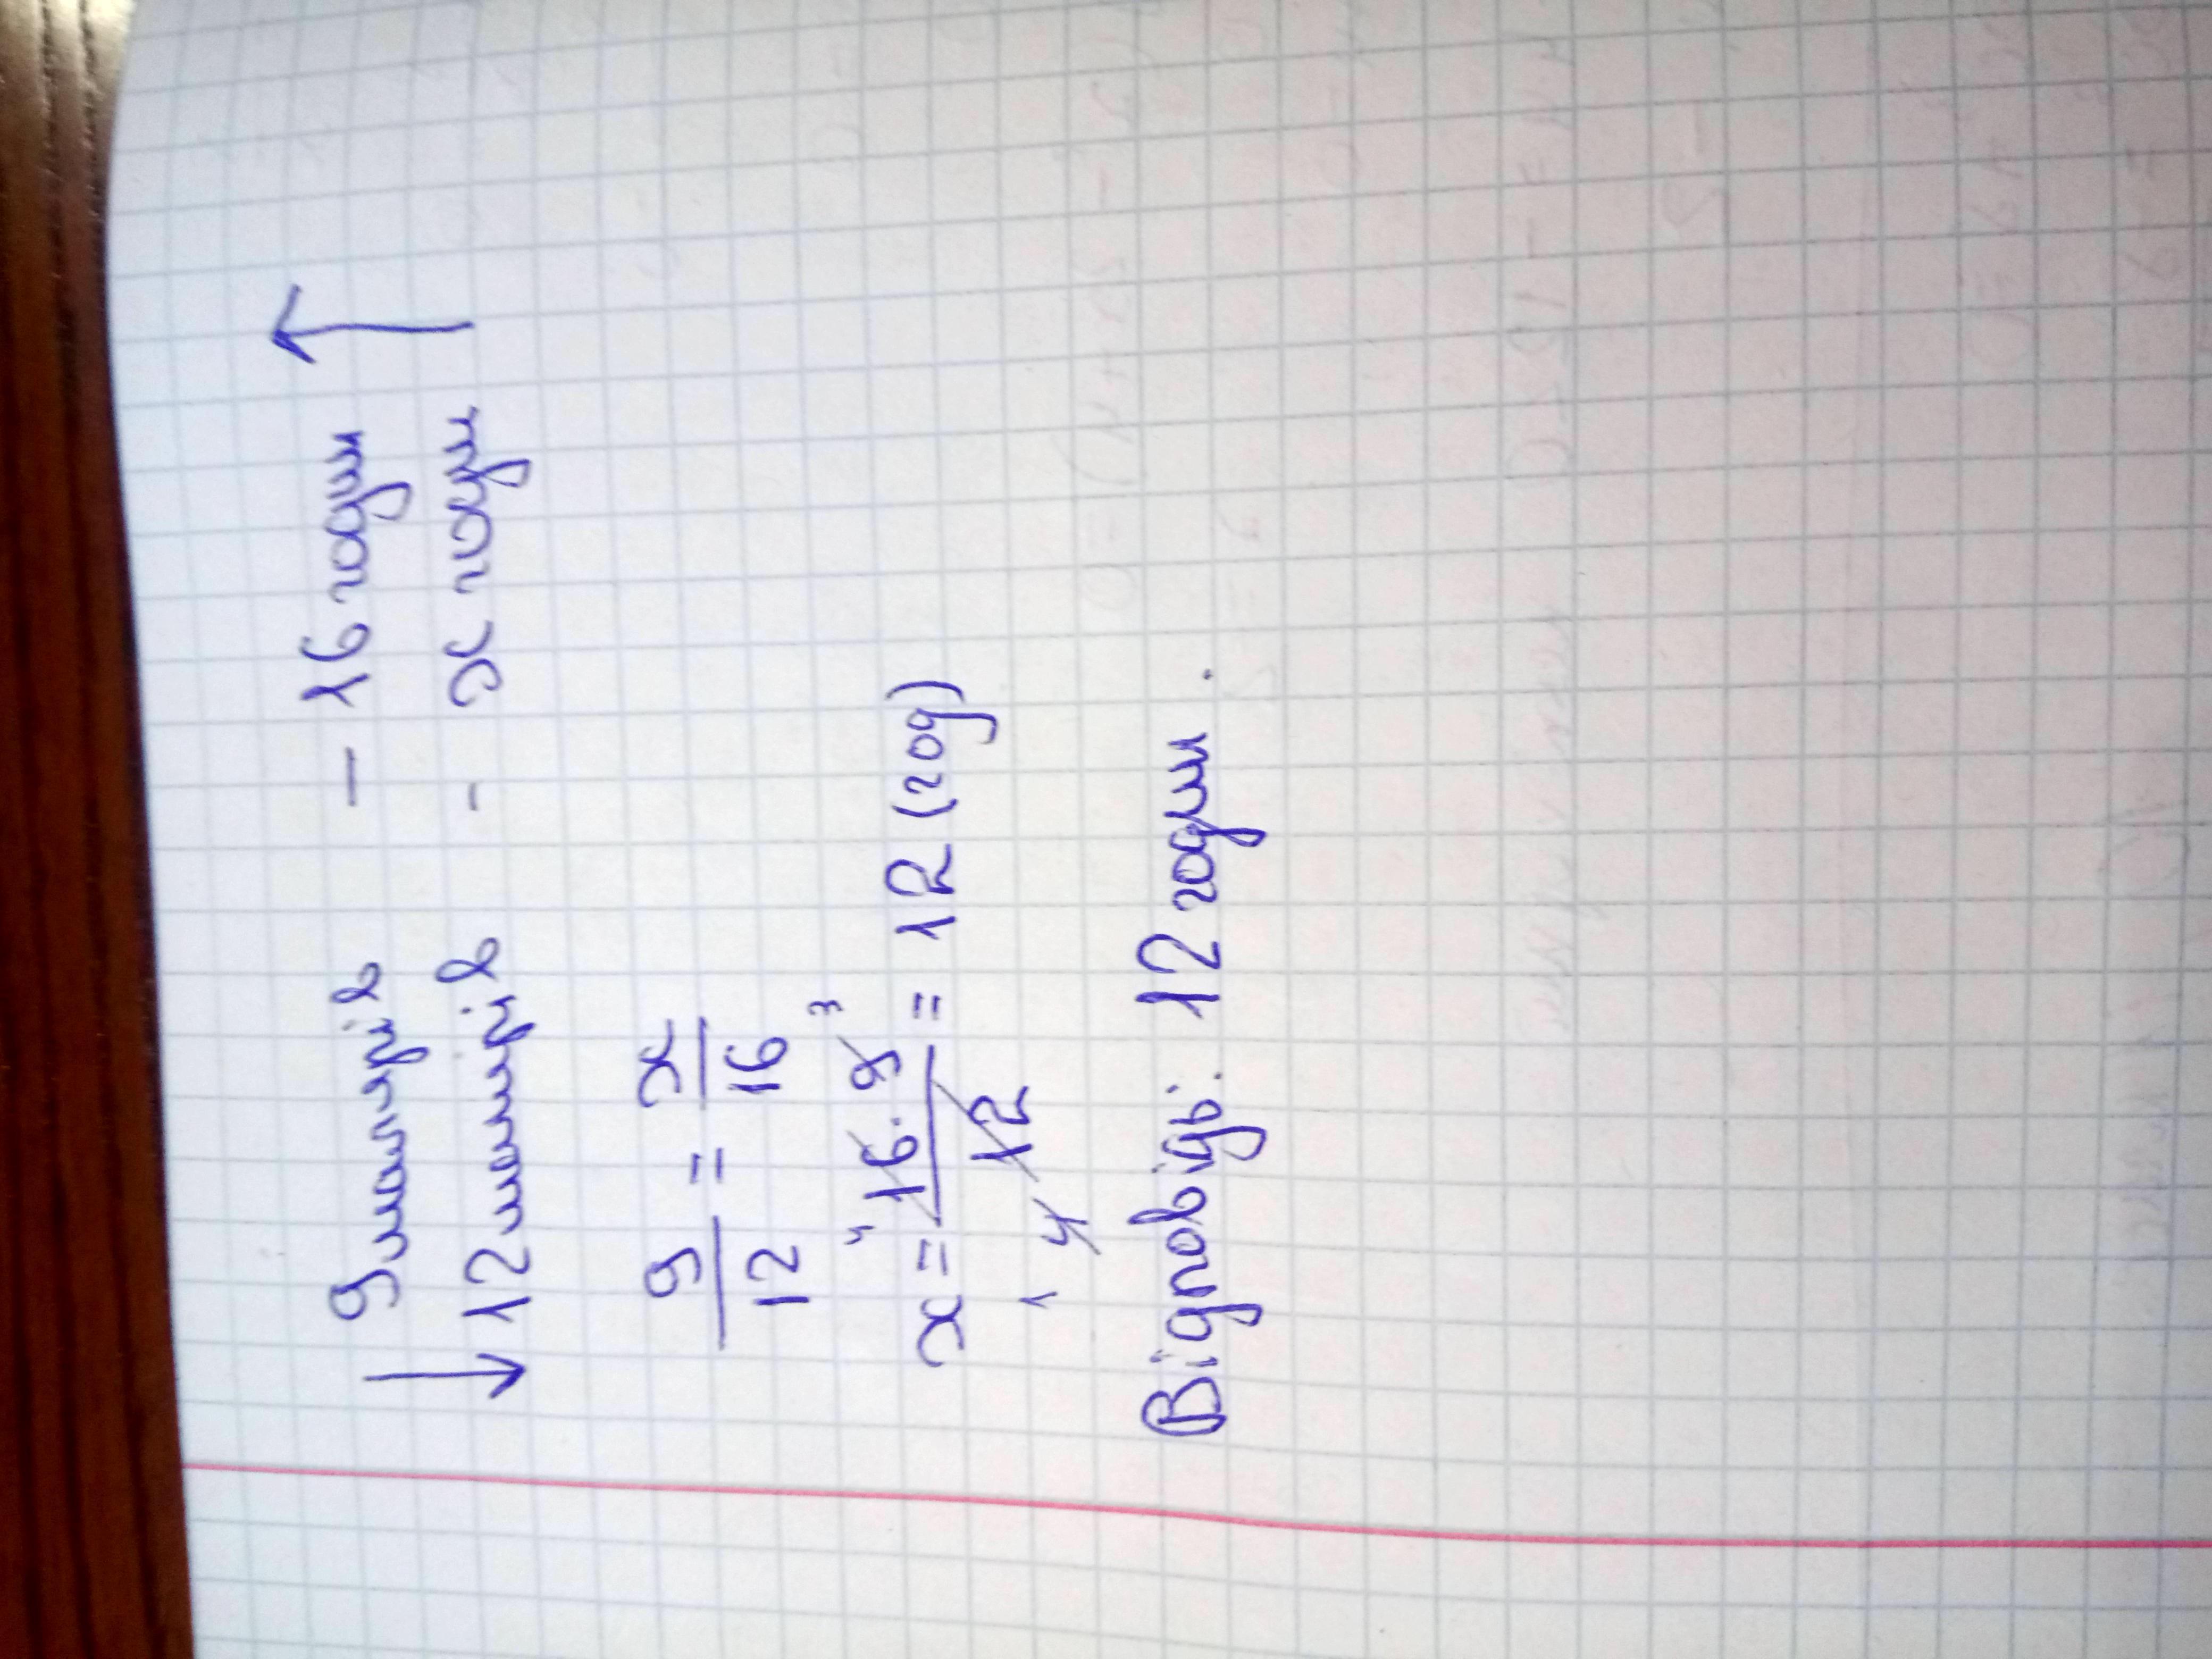 ↓ 9 малярів – 16 годин ↑
12 малярів - x годин
9/12 = x/16
x = 16 · 9 / 12 = 12 (год)
4 3
1 4
Відповідь: 12 годин.